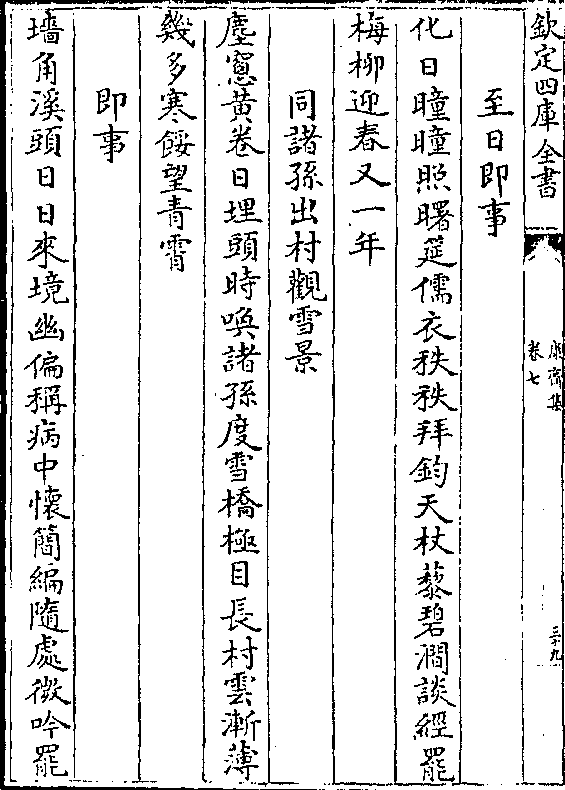 欽定四庫全書
康齋集
卷七
三十九
至日即事
化日曈曈照曙筵儒衣秩秩拜鈞天杖藜碧澗談經罷
梅柳迎春又一年
同諸孫出村觀雪景
塵窻黃卷日埋頭時喚諸孫度雪橋極目長村雲漸薄
幾多寒餒望青霄
即事
墻角溪頭日日來境幽偏稱病中懷簡編隨處微吟罷